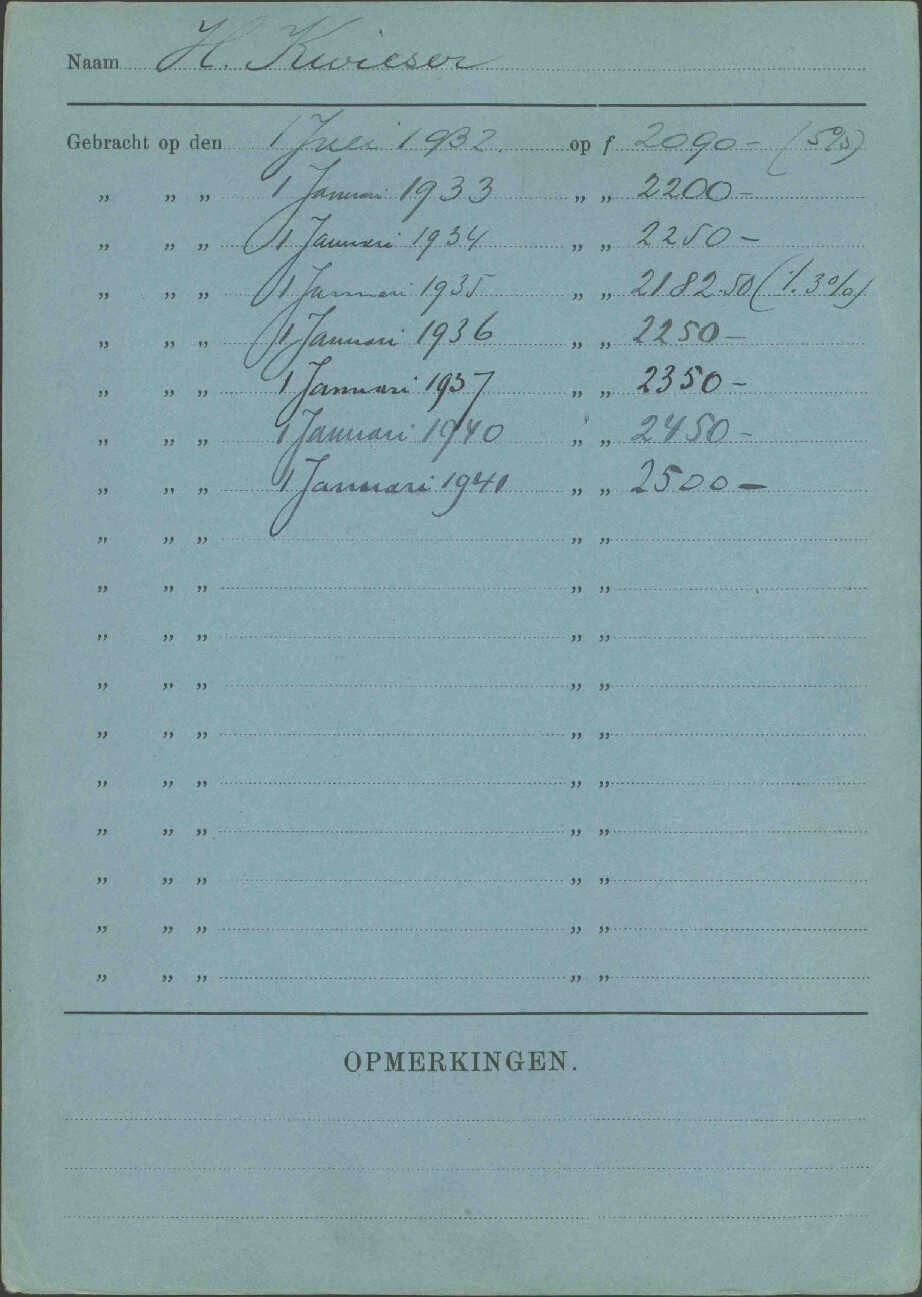 Naam H. Kwieser
Gebracht op den 1 Juli 1932. op f 2090 - (5%)
„ „ „ 1 Januari 1933 „ „ 2200 -
„ „ „ 1 Januari 1934 „ „ 2250 -
„ „ „ 1 Januari 1935 „ „ 2182.50 (%. 3%)
„ „ „ 1 Januari 1936 „ „ 2250 -
„ „ „ 1 Januari 1937 „ „ 2350 -
„ „ „ 1 Januari 1940 „ „ 2450 -
„ „ „ 1 Januari 1941 „ „ 2500 -
„ „ „ „ „
„ „ „ „ „
„ „ „ „ „
„ „ „ „ „
„ „ „ „ „
„ „ „ „ „
„ „ „ „ „
„ „ „ „ „
„ „ „ „ „
„ „ „ „ „
OPMERKINGEN.